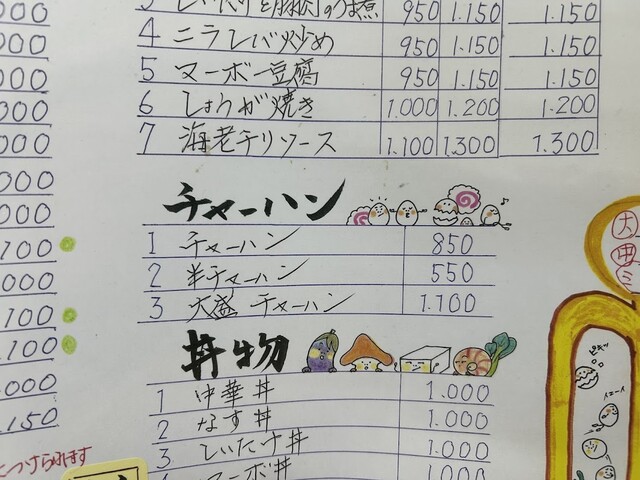 000
000
000
000
000
000
000
100
000
100
100
000
150
3 しいたけと豚肉のうま煮 950 1.150 1.150
4 ニラレバ炒め 950 1.150 1.150
5 マーボー豆腐 950 1.150 1.150
6 しょうが焼き 1.000 1.200 1.200
7 海老チリソース 1.100 1.300 1.300
チャーハン
1 チャーハン 850
2 半チャーハン 550
3 大盛 チャーハン 1.100
丼物
1 中華丼 1.000
2 なす丼 1.000
3 しいたけ丼 1.000
4 マーボ丼 1.000